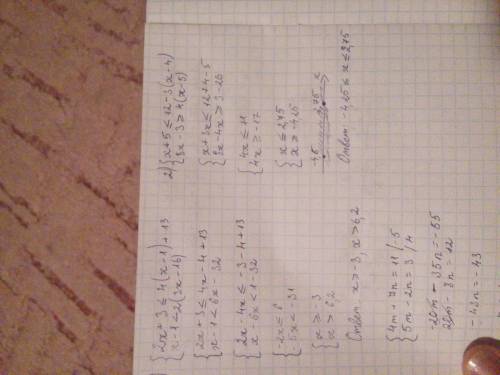 1) {2x + 3 ≤ 4(x-1) + 13
{x - 1 < 2(3x - 16)
{2x + 3 ≤ 4x - 4 + 13
{x - 1 < 6x - 32
{2x - 4x ≤ -3 - 4 + 13
{x - 6x < 1 - 32
{-2x ≤ 6
{-5x < -31
{x ≥ -3
{x > 6,2
Ответ x ≥ -3, x > 6,2
{4m - 7n = 11 /·5
{5m - 2n = 3 /4
-20m - 35n = -55
20m - 8n = 12
- 43n = -43
2) {x + 5 ≤ 12 - 3(x-4)
{8x - 3 ≥ 4(x-5)
{x + 3x ≤ 12 + 4 - 5
{8x - 4x ≥ 3 - 20
{4x ≤ 11
{4x ≥ -17
{x ≤ 2,75
{x ≥ -4,25
2,75 x
Ответ -4,25 ≤ x ≤ 2,75